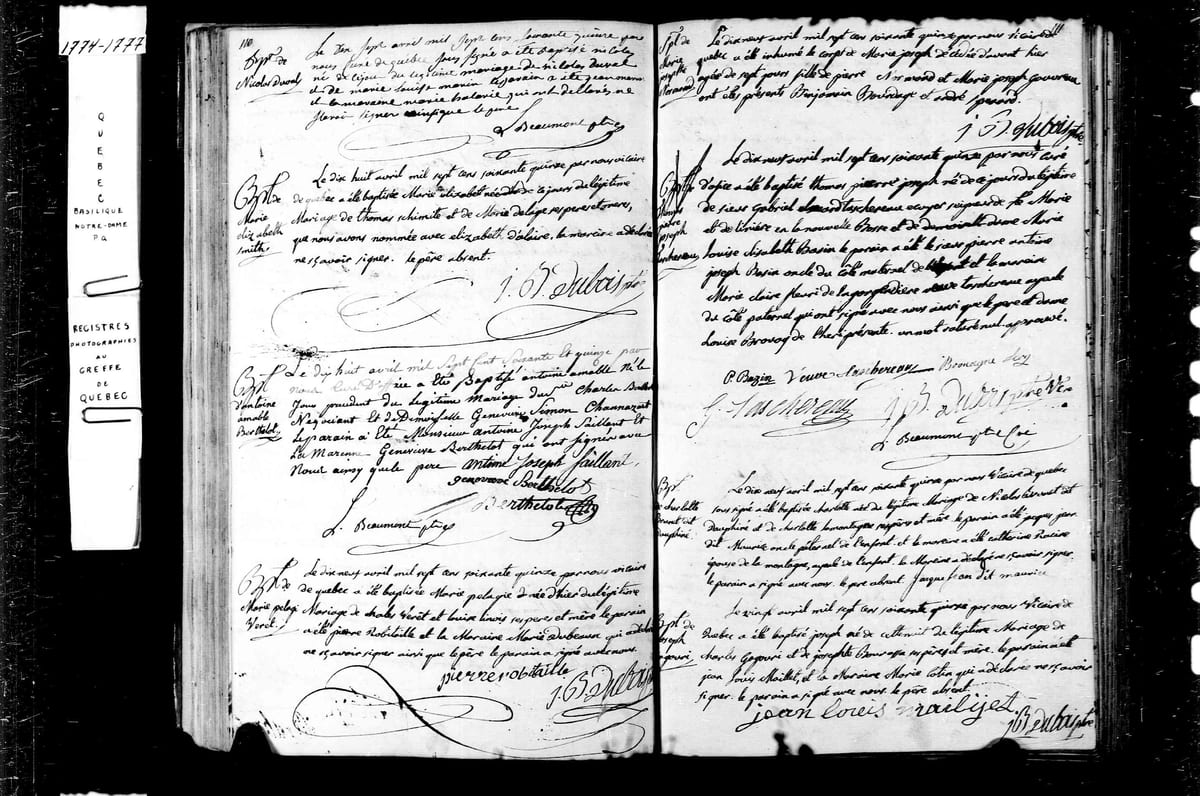 1774-1777
QUEBEC
BASILIQUE
NOTRE-DAME
P.Q
REGISTRES
PHOTOGRAPHIES
AU
GREFFE
DE
QUEBEC
110
Bpt. de
Nicolas duval
Le dix sept avril mil sept cens soixante quinze par
nous curé de quebec sous signé a été baptisé nicolas
né de du legitime mariage de nicolas duval
et de marie louise marin le parain a été jean
et la maraine marie qui ont déclaré ne
signer le père
L Beaumont ptre
Bpt. de
Marie
elizabeth
smith
Le dix huit avril mil sept cens soixante quinze par nous vicaire
de quebec a été baptisée Marie elizabet née de ce jour du légitime
Mariage de thomas schimite et de Marie delage ses pere et mere,
que nous avons nommée avec elizabeth d'alaire. la mareine a declaré
ne sçavoir signer. le père absent.
J. B. Dubois ptre
Bpt.
d'antoine
amable
Berthelot
Le dix huit avril mil sept cent soixante et quinze par
nous curé D'office a Eté Baptisé antoine amable Né le
Jour precedent du legitime Mariage du sr Charles Berthelot
Negociant et de Demoiselle Genevieve Simon Channazart
le parain a Eté Monsieur antoine Joseph Saillant Et
La Marenne Genevieve Berthelot qui ont signer avec
Nous ainsy que le pere antoine Joseph Saillant.
genevieve Berthelot
Berthelot
L. Beaumont ptre
Bpt. de
Marie pelagie
Verêt
Le dix neuf avril mil sept cens soixante quinze par nous vicaire
de quebec a été baptisée Marie pelagie née d'hier du légitime
Mariage de charles Verêt et louise ses peres et mère le parain
a été pierre Robitaille et la Maraine Marie Dubeau qui a declaré
ne sçavoir signer ainsi que le père le parain a signé avec nous.
pierre robitaille
J. B. Dubois
110
Spt de
Marie
josephte
Normand
Le dix neuf avril mil sept cens soixante quinze par nous vicaire de
quebec a été inhumé le corps de Marie joseph décédée d'avant hier
agée de sept jours fille de pierre Normand et Marie joseph Gauvreau
ont étés présents Benjamin Bourdage et andré
J B Dubois ptre
Bpt. de
thomas
pierre
joseph
Taschereau
Le dix neuf avril mil sept cens soixante quinze par nous curé
d'office a été baptisé thomas pierre joseph né de ce jour du légitime
de sieur Gabriel taschereau ecuyer seigneur de Ste Marie
et de liniere en la nouvelle Bosse et de demoiselle dame Marie
louise elisabeth Bazin le parain a été le sieur pierre antoine
joseph Bazin oncle du côté maternel de l'enfant et la maraine
Marie claire fleuri de la gorgendiere veuve taschereau ayeule
du côté paternel qui ont signé avec nous ainsi que le pere et dame
Louise présente. un mot raturé nul. approuvé.
P. Bazin Veuve taschereau
G. Taschereau
J B Dubois ptre Vic.
L. Beaumont ptre Cré
Bpt.
charlotte
dauphiné
Le dix neuf avril mil sept cens soixante quinze par nous vicaire de quebec
sous signé a été baptisée charlotte née du légitime Mariage de Nicolas dit
Dauphiné et de charlotte lamontagne ses père et mère le parain a été jaques jean
dit Maurice oncle paternel de l'enfant. et la mareine a été catherine Racine
épouse de la montagne, ayeule de l'enfant. la Mareine a déclaré ne sçavoir signer
le parain a signé avec nous. le père absent jacque jean dit maurice
Bpt de
joseph
Le vingt avril mil sept cens soixante quinze par nous vicaire de
Quebec a été baptisé joseph né de cette nuit du légitime Mariage de
charles et de josephte Bourassa ses père et mère. le parain a été
jean louis Maillet, et la Maraine Marie Colin qui a déclaré ne sçavoir
signer. le parain a signé avec nous le père absent.
jean louis mailljet
J B Dubois ptre